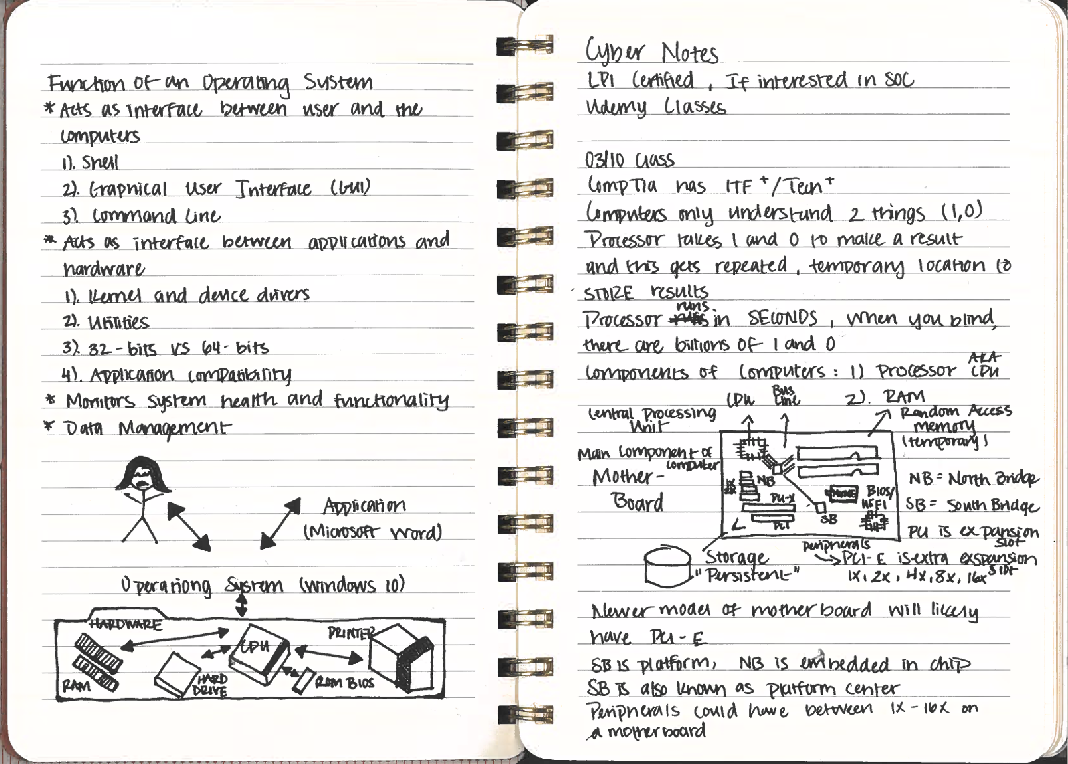 Function of an Operating System
* Acts as interface between user and the
computers
1). Shell
2). Graphical User Interface (GUI)
3). Command Line
* Acts as interface between applications and
hardware
1). Kernel and device drivers
2). Utilities
3). 32-bits vs 64-bits
4). Application compatibility
* Monitors system health and functionality
* Data Management
Application
(Microsoft Word)
Operationg System (Windows 10)
HARDWARE
RAM
HARD
DRIVE
CPU
ROM BIOS
PRINTER
Cyber Notes
LPI Certified, If interested in SOC
Udemy Classes
03/10 Class
CompTia has ITF+/Tech+
Computers only understand 2 things (1,0)
Processor takes 1 and 0 to make a result
and this gets repeated, temporary location to
STORE results
Processor runs in SECONDS, when you blind,
there are billions of 1 and 0
Components of Computers: 1) Processor AKA CPU
CPU
Bus
Line
2). RAM
Random Access
memory
(temporary)
Central Processing
Unit
Main Component of
computer
Mother-
Board
NB
PCI-X
PCI
SB
BIOS/
UEFI
NB = North Bridge
SB = South Bridge
PCI is expansion
slot
Storage
"Persistent"
Peripherals
PCI-E is extra expansion
slot
1x, 2x, 4x, 8x, 16x
Newer model of motherboard will likely
have PCI-E
SB is platform, NB is embedded in chip
SB is also known as platform center
Peripherals could have between 1x-16x on
a motherboard